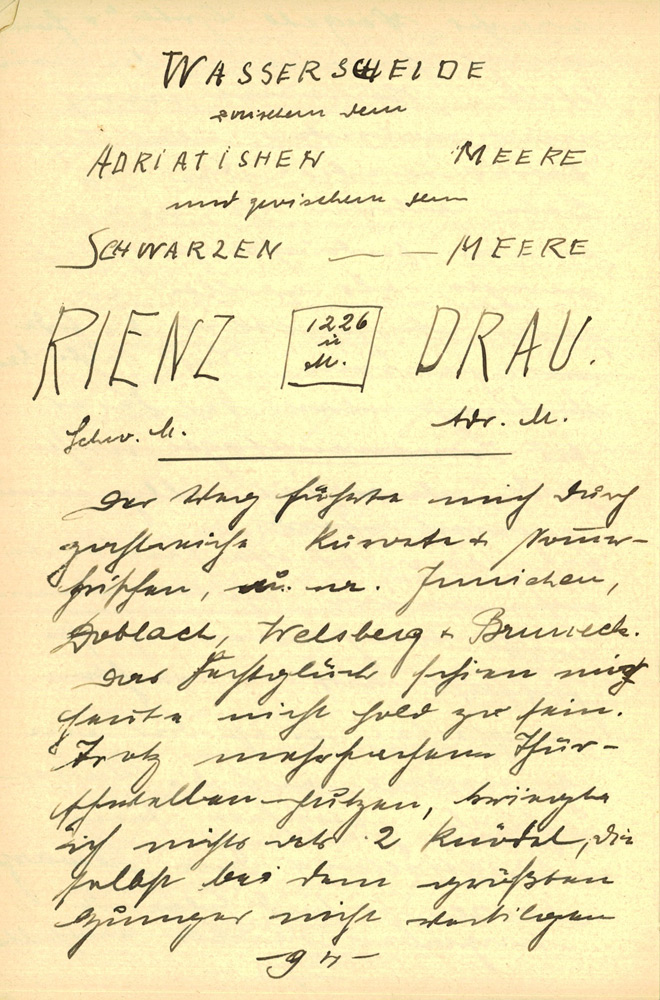 WASSERSCHEIDE
zwischen dem
ADRIATISHEN MEERE
und zwischen dem
SCHWARZEN — — MEERE
RIENZ 1226 ü M. DRAU.
Schw. M. Adr. M.
Der Weg führte mich durch
zahlreiche Kurorte + Somer-
frischen, u. a. Innichen,
Doblach, Welsberg + Bruneck.
Das Fechtglück schien mir
heute nicht hold zu sein.
Trotz mehrfachem Thür-
schnallen-putzen, kriegte
ich nichts als 2 Knödel, die
selbst bei dem größten
Hunger nicht vertilgen